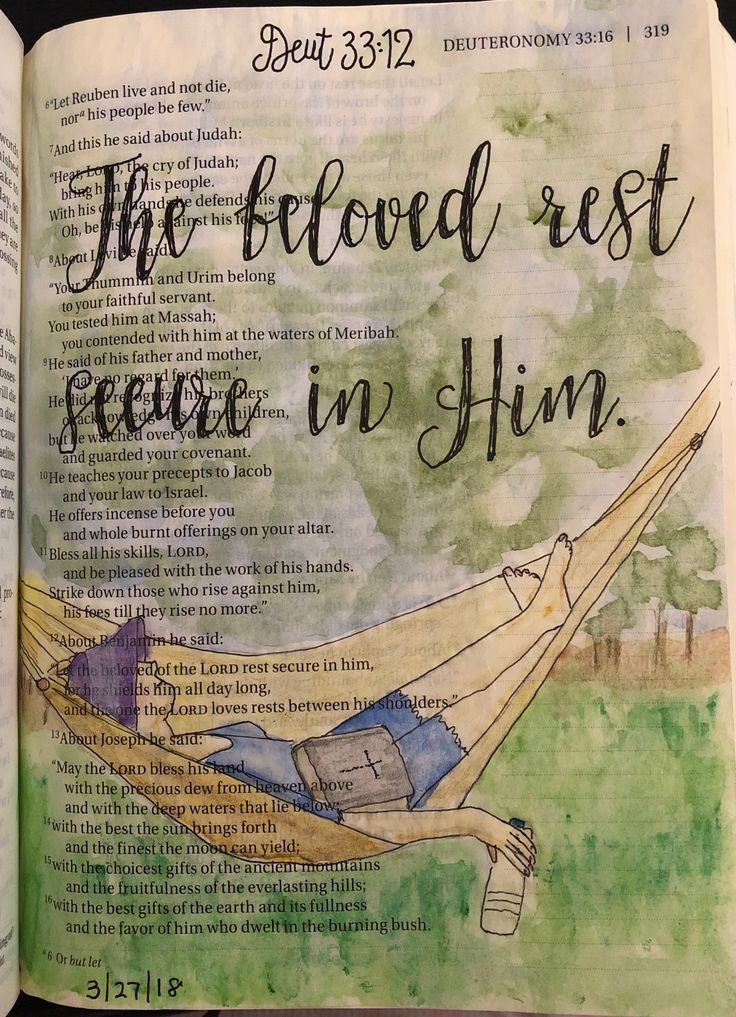 Deut 33:12
DEUTERONOMY 33:16 | 319
The beloved rest
secure in Him.
6 "Let Reuben live and not die,
nor a his people be few."
7 And this he said about Judah:
"Hear, LORD, the cry of Judah;
bring him to his people.
With his own hands he defends his cause.
Oh, be his help against his foes!"
8 About Levi he said:
"Your Thummim and Urim belong
to your faithful servant.
You tested him at Massah;
you contended with him at the waters of Meribah.
9 He said of his father and mother,
'I have no regard for them.'
He did not recognize his brothers
or acknowledge his own children,
but he watched over your word
and guarded your covenant.
10 He teaches your precepts to Jacob
and your law to Israel.
He offers incense before you
and whole burnt offerings on your altar.
11 Bless all his skills, LORD,
and be pleased with the work of his hands.
Strike down those who rise against him,
his foes till they rise no more."
12 About Benjamin he said:
"Let the beloved of the LORD rest secure in him,
for he shields him all day long,
and the one the LORD loves rests between his shoulders."
13 About Joseph he said:
"May the LORD bless his land
with the precious dew from heaven above
and with the deep waters that lie below;
14 with the best the sun brings forth
and the finest the moon can yield;
15 with the choicest gifts of the ancient mountains
and the fruitfulness of the everlasting hills;
16 with the best gifts of the earth and its fullness
and the favor of him who dwelt in the burning bush.
a 6 Or but let
3/27/18